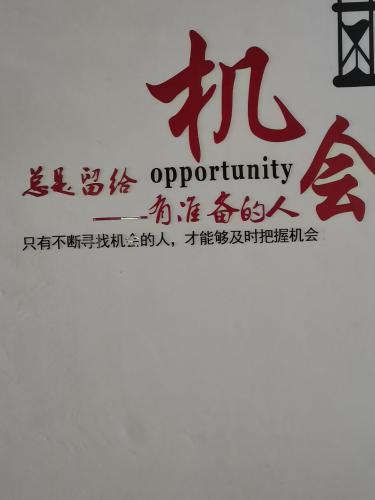 机会
总是留给
opportunity
——有准备的人
只有不断寻找机会的人，才能够及时把握机会